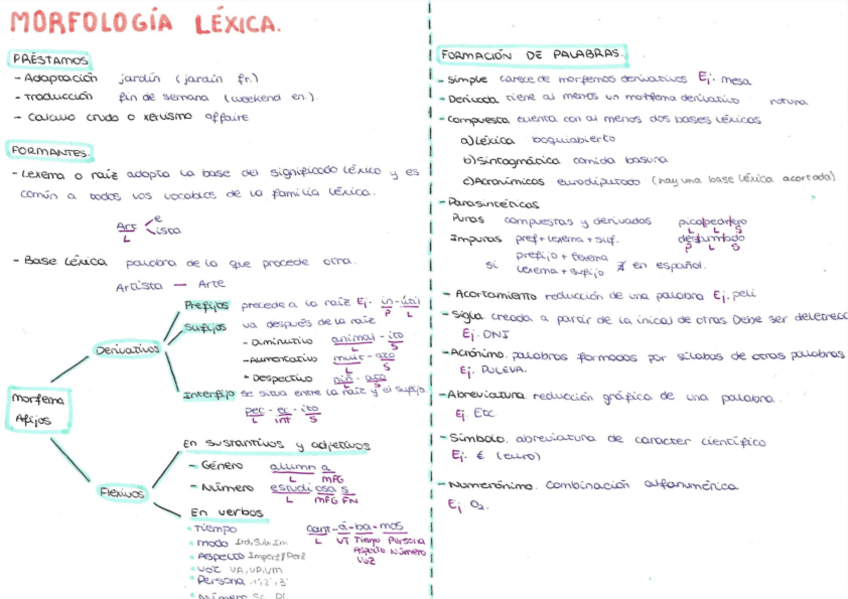 MORFOLOGÍA LÉXICA.
PRÉSTAMOS
- Adaptación jardín (jardin fr.)
- Traducción fin de semana (weekend en.).
- Calco crudo o xenismo affaire
FORMANTES.
- Lexema o raíz adopta la base del significado léxico y es
común a todos los vocablos de la familia léxica.
Art e
L ista
- Base léxica palabra de la que procede otra.
Artista — Arte
Morfema
Afijos
Derivativos
Prefijos precede a la raíz Ej. in-útil
P L
Sufijos va después de la raíz
- Diminutivo animal-ito
L S
- Aumentativo
L S
- Despectivo
L S
Interfijo se sitúa entre la raíz y el sufijo
pec-ec-ito
L INT S
Flexivos
En sustantivos y adjetivos
- Género alumn a
L MFG
- Número estudiosa s
L MFG FN
En verbos
Tiempo cant-á-ba-mos
L VT Tiempo Persona
Modo Ind, Sub, Im Aspecto Número
Aspecto Imperf/Perf Voz
Voz VA, VP, VM
Persona 1ª, 2ª, 3ª
Número
FORMACIÓN DE PALABRAS.
- Simple carece de morfemos derivativos Ej. mesa
- Derivada tiene al menos un morfema derivativo
- Compuesta cuenta con al menos dos bases léxicas
a) Léxica boquiabierto
b) Sintagmática comida basura
c) Acronímicas eurodiputado (hay una base léxica acortada)
- Parasintéticas
Puras compuestas y derivados picapedrero
L L S
Impuras pref + lexema + suf.
P L S
si prefijo + lexema
lexema + sufijo ∄ en español.
- Acortamiento reducción de una palabra Ej. peli
- Sigla creada a partir de la inicial de otras Debe ser deletread
Ej. DNI
- Acrónimo. palabras formadas por sílabas de otras palabras
Ej. PULEVA.
- Abreviatura reducción gráfica de una palabra.
Ej. Etc
- Símbolo. abreviatura de caracter científico
Ej. € (euro)
- Numerónimo. Combinación alfanumérica
Ej O₂.